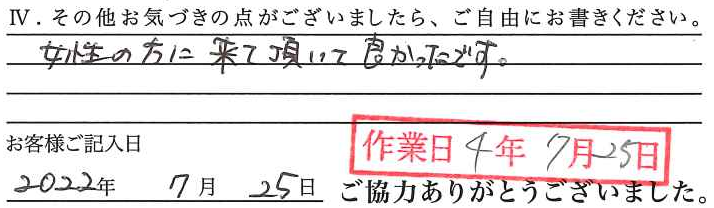 Ⅳ．その他お気づきの点がございましたら、ご自由にお書きください。
女性の方に来て頂いて良かったです。
お客様ご記入日
作業日 4年 7月25日
2022年 7月 25日 ご協力ありがとうございました。